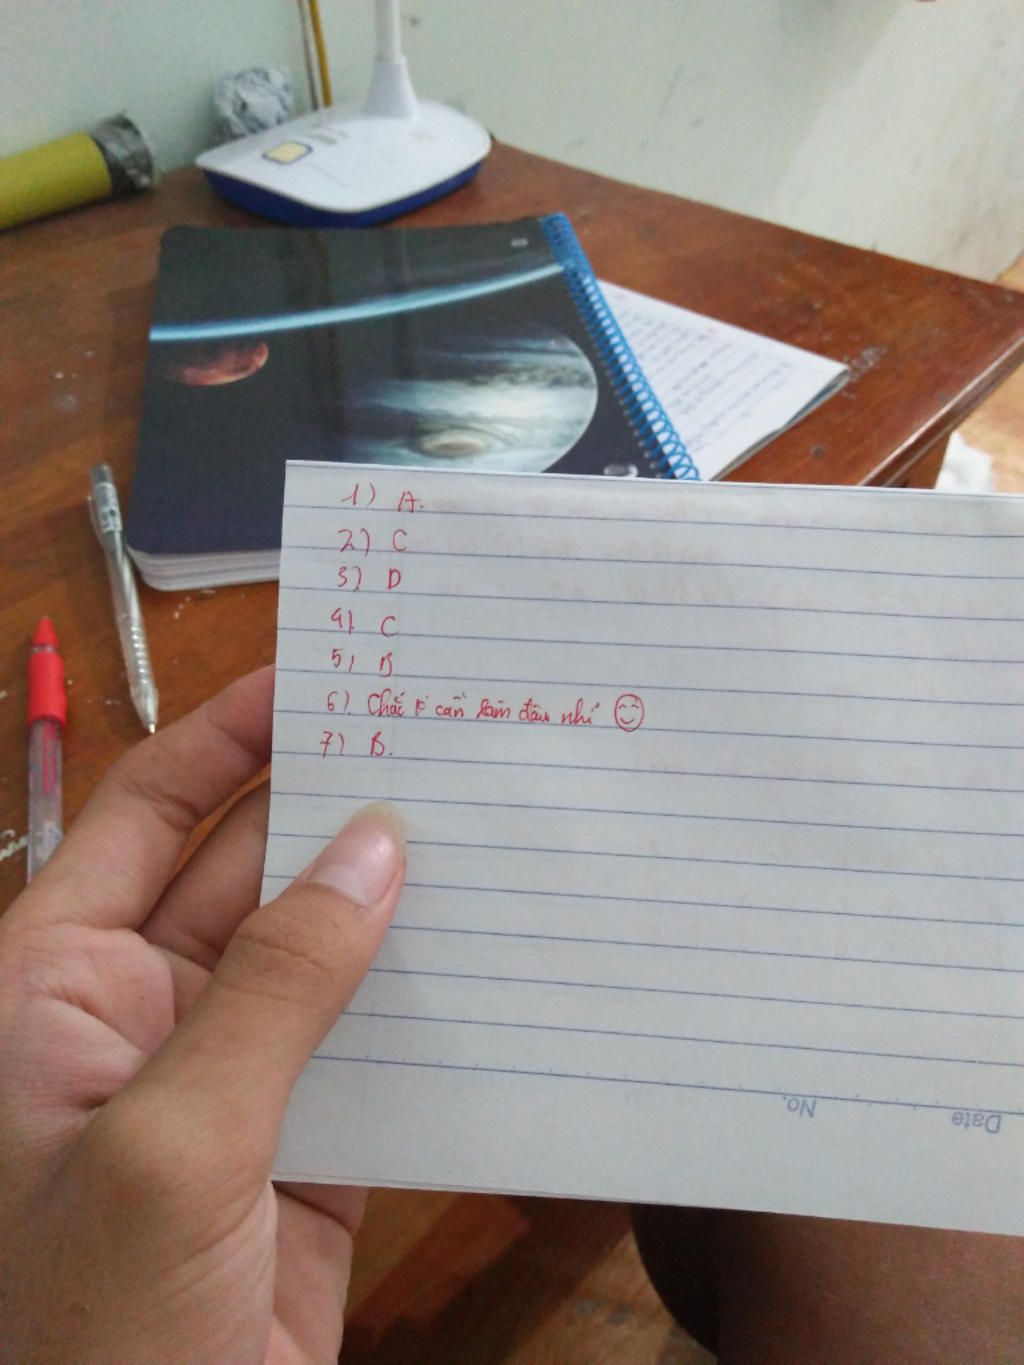 1) A.
2) C
3) D
4) C
5) B
6). Chắc k cần làm đâu nhỉ
7) B.
No.
Date